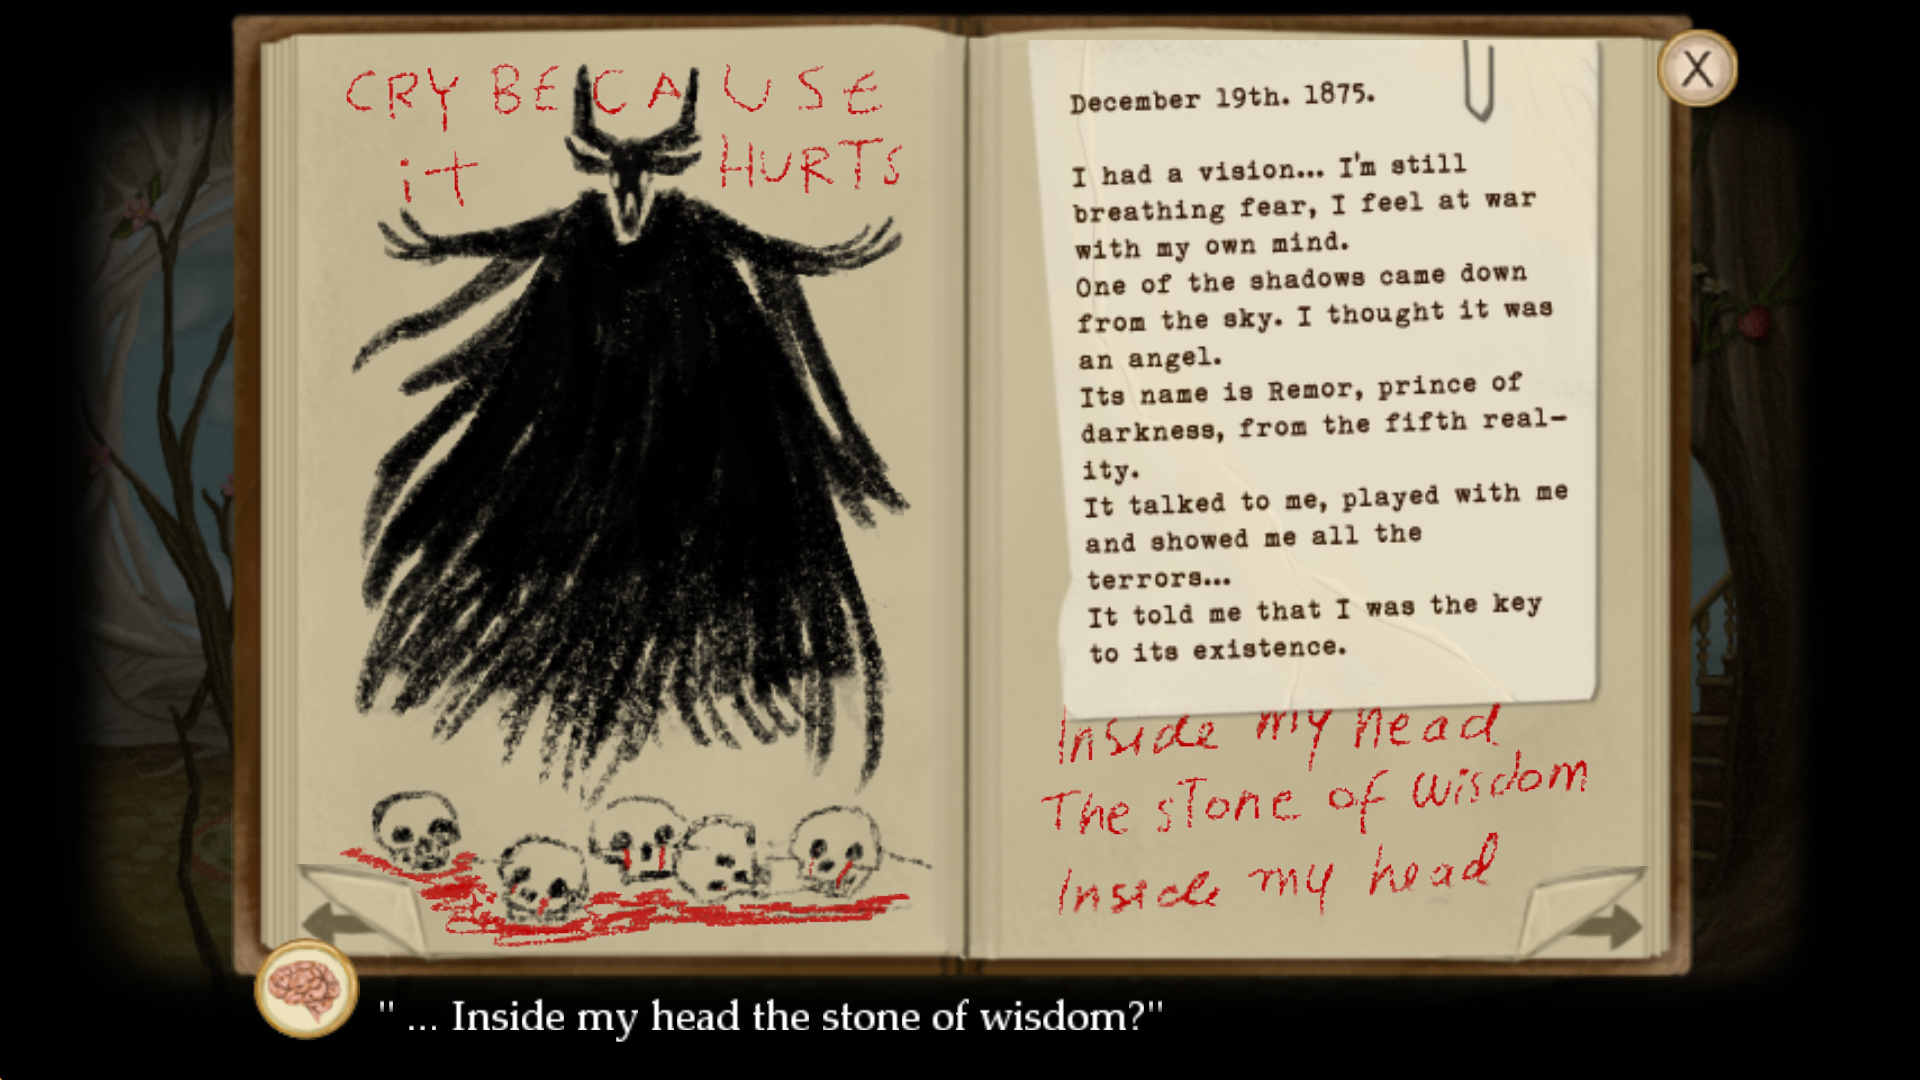 CRY BECAUSE
it HURTS
December 19th. 1875.
I had a vision... I'm still
breathing fear, I feel at war
with my own mind.
One of the shadows came down
from the sky. I thought it was
an angel.
Its name is Remor, prince of
darkness, from the fifth real-
ity.
It talked to me, played with me
and showed me all the
terrors...
It told me that I was the key
to its existence.
Inside my head
The stone of wisdom
Inside my head
X
" ... Inside my head the stone of wisdom?"